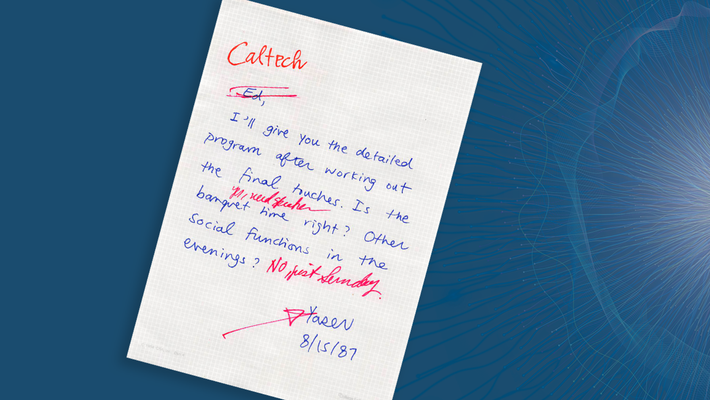 Caltech
Ed,
I'll give you the detailed
program after working out
the final touches. Is the
banquet time right? Other
social functions in the
evenings? No, just Sunday.
Yaser
8/15/87